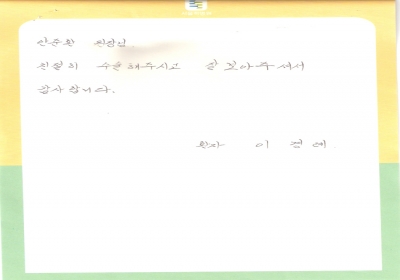 안준환 원장님
친절히 수술해주시고 잘 보아주셔서
감사합니다.
환자 이 정 애